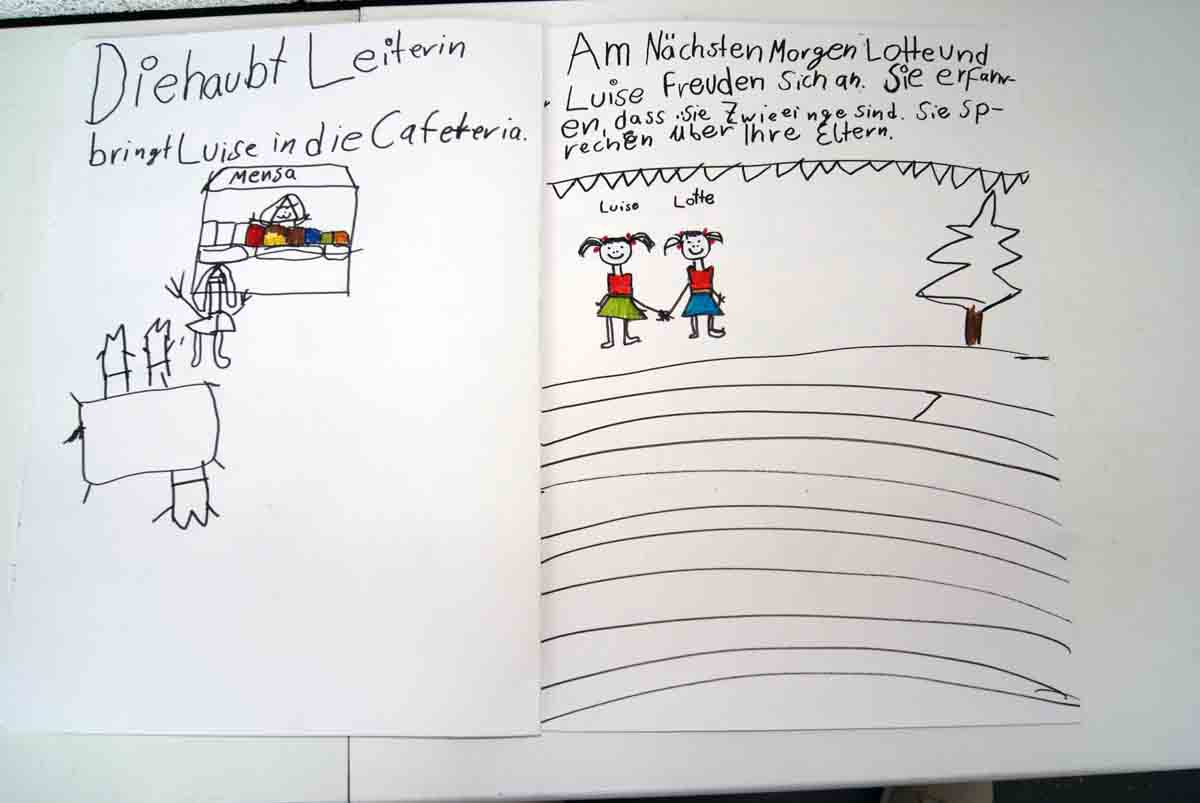 Diehaubt Leiterin
bringt Luise in die Cafeteria.
Mensa
Am Nächsten Morgen Lotte und
Luise Freuden Sich an. Sie erfahr-
en, dass Sie Zwieeinge sind. Sie Sp-
rechen über Ihre Eltern.
Luise Lotte